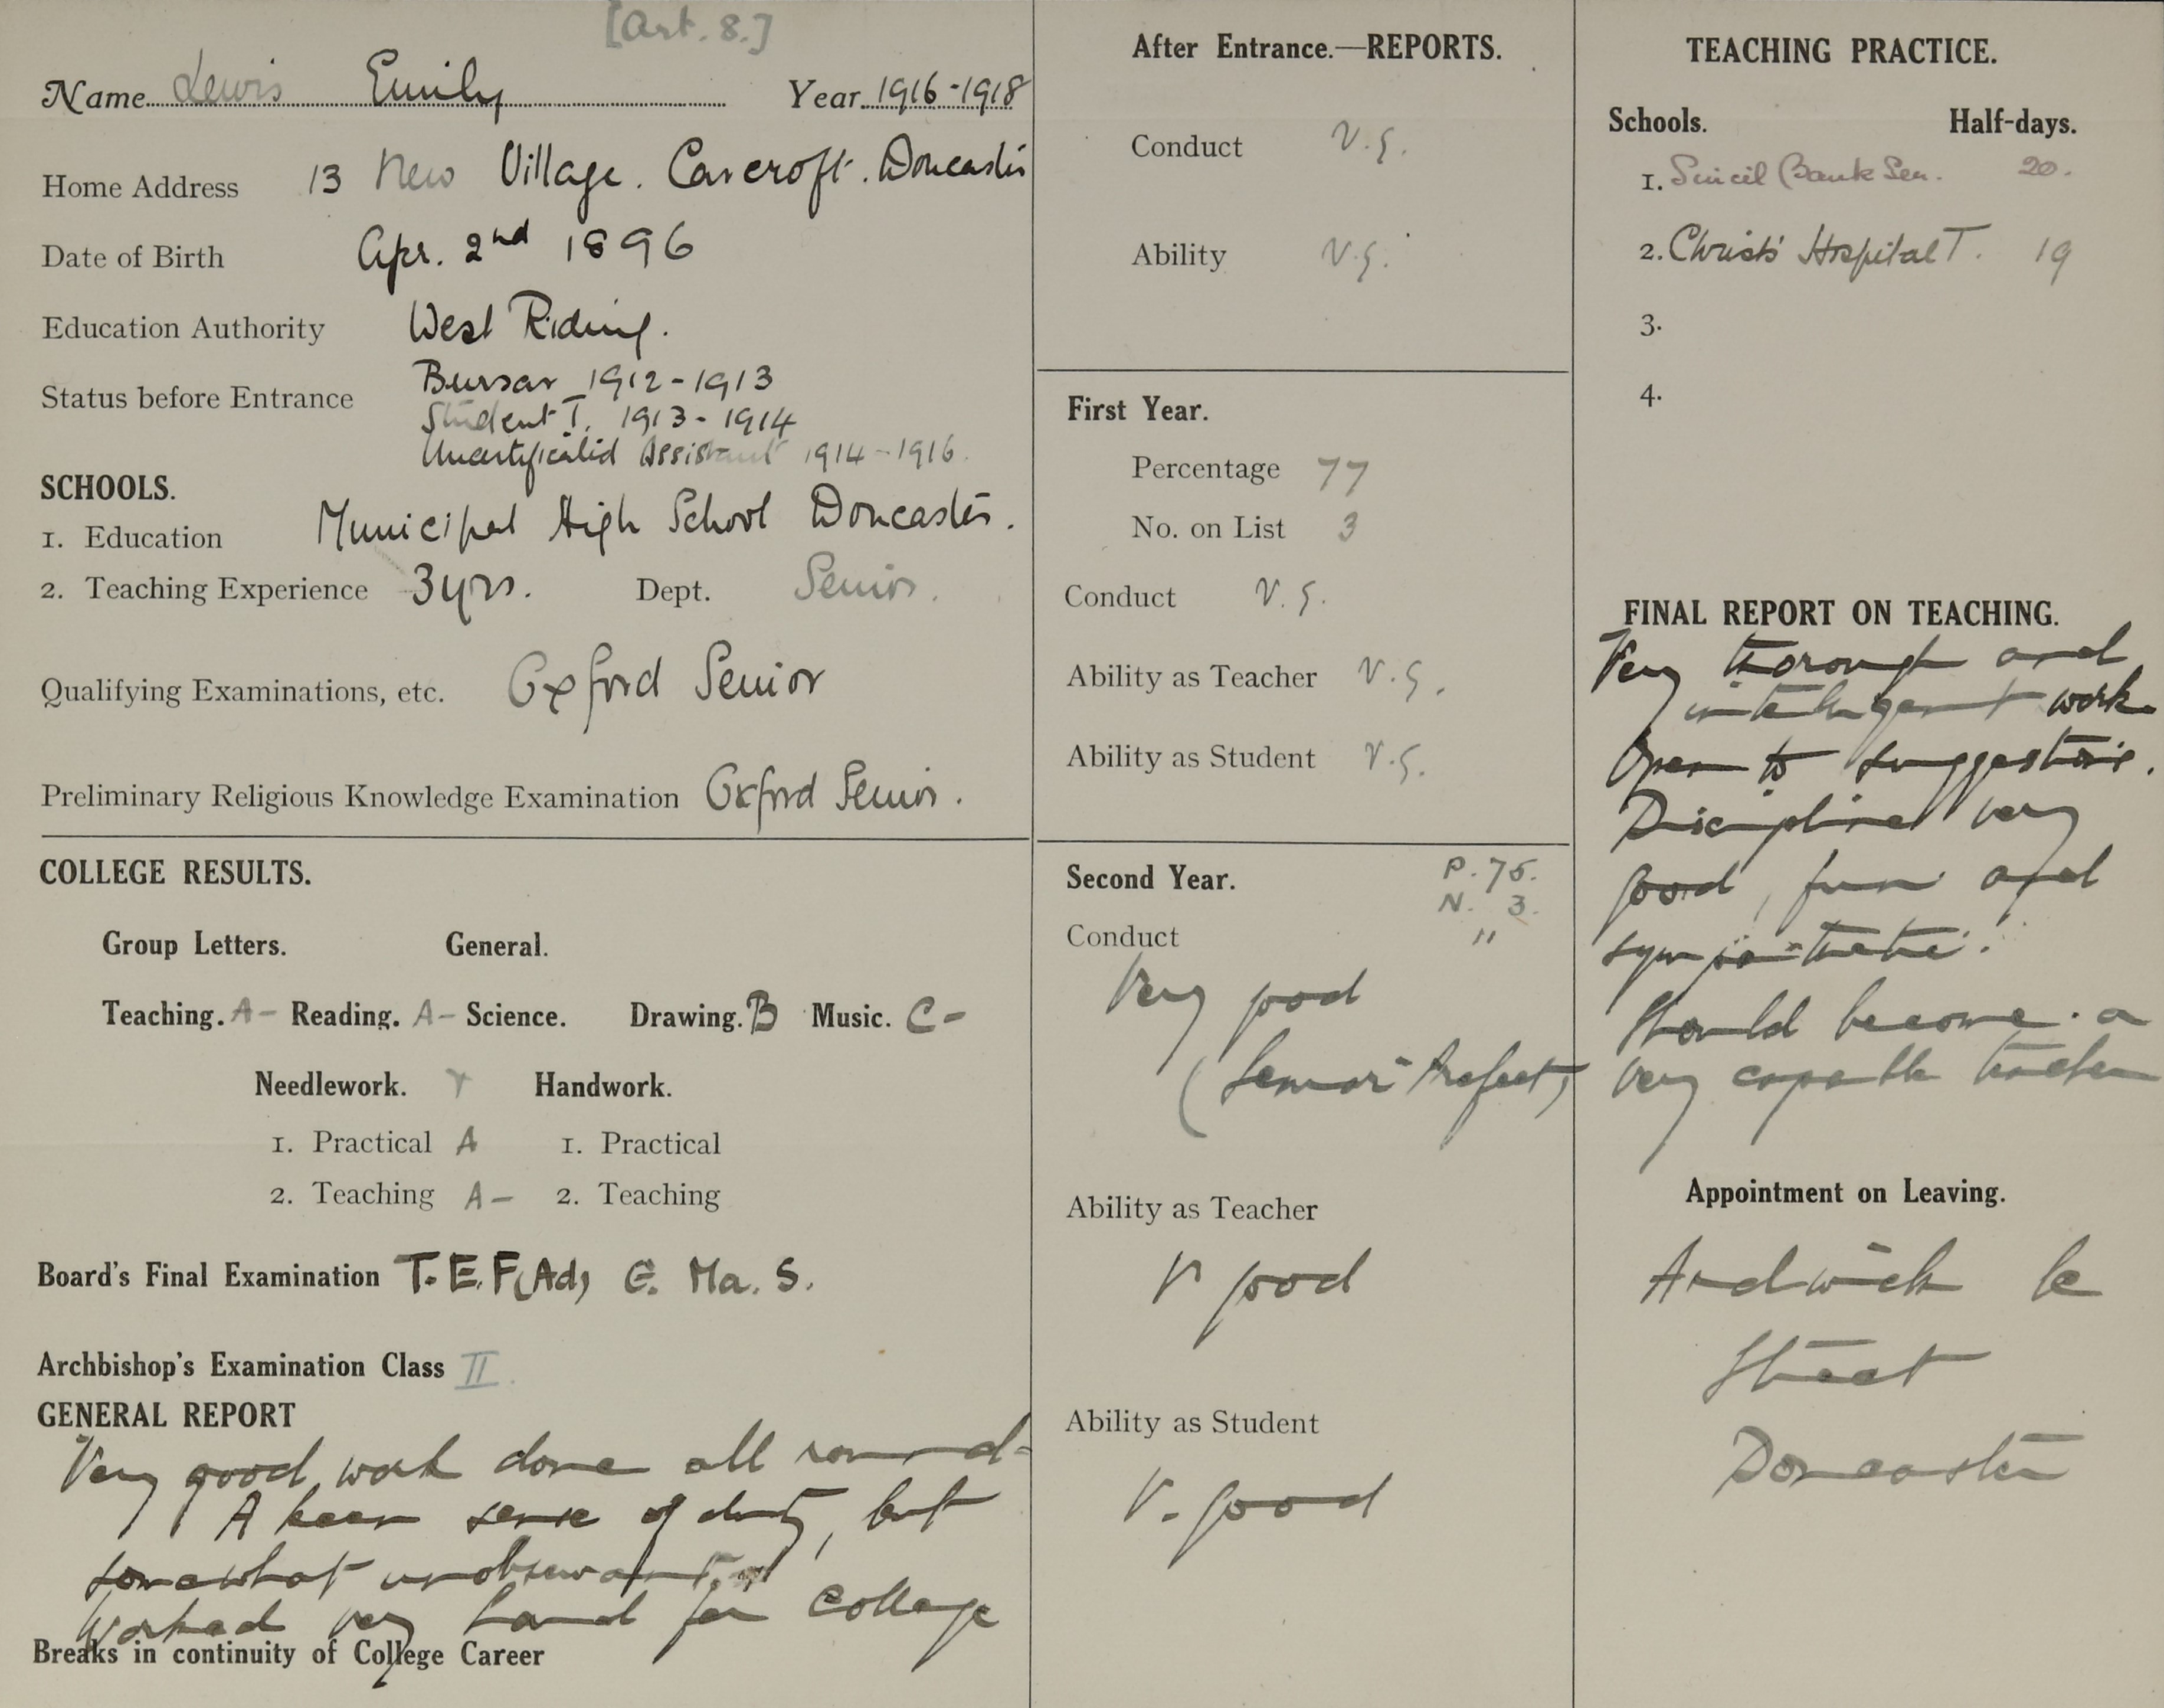 [Art. 8.]
Name Lewis Emily Year 1916-1918
Home Address 13 New Village. Carcroft. Doncaster
Date of Birth Apr. 2nd 1896
Education Authority West Riding.
Status before Entrance Bursar 1912-1913
Student T. 1913-1914
Uncertificated Assistant 1914-1916.
SCHOOLS.
1. Education Municipal High School Doncaster.
2. Teaching Experience 3 yrs. Dept. Senior.
Qualifying Examinations, etc. Oxford Senior
Preliminary Religious Knowledge Examination Oxford Senior.
COLLEGE RESULTS.
Group Letters. General.
Teaching. A- Reading. A- Science. Drawing. B Music. C-
Needlework. Handwork.
1. Practical A 1. Practical
2. Teaching A- 2. Teaching
Board's Final Examination T. E. F (Ad) G. Ma. S.
Archbishop's Examination Class II.
GENERAL REPORT
Very good work done all round-
A keen sense of duty, but
somewhat unobservant.
Worked very hard for College
Breaks in continuity of College Career
After Entrance.—REPORTS.
Conduct V.G.
Ability V.G.
First Year.
Percentage 77
No. on List 3
Conduct V.G.
Ability as Teacher V.G.
Ability as Student V.G.
Second Year. P. 75.
N. 3.
Conduct "
Very good
(Senior Prefect)
Ability as Teacher
V good
Ability as Student
V. good
TEACHING PRACTICE.
Schools. Half-days.
1. Sincil Bank Sen. 20.
2. Christ's Hospital T. 19
3.
4.
FINAL REPORT ON TEACHING.
Very thorough and
intelligent work
Open to suggestions.
Discipline very
good, firm and
sympathetic.
Should become a
very capable teacher
Appointment on Leaving.
Ardwick le
Street
Doncaster